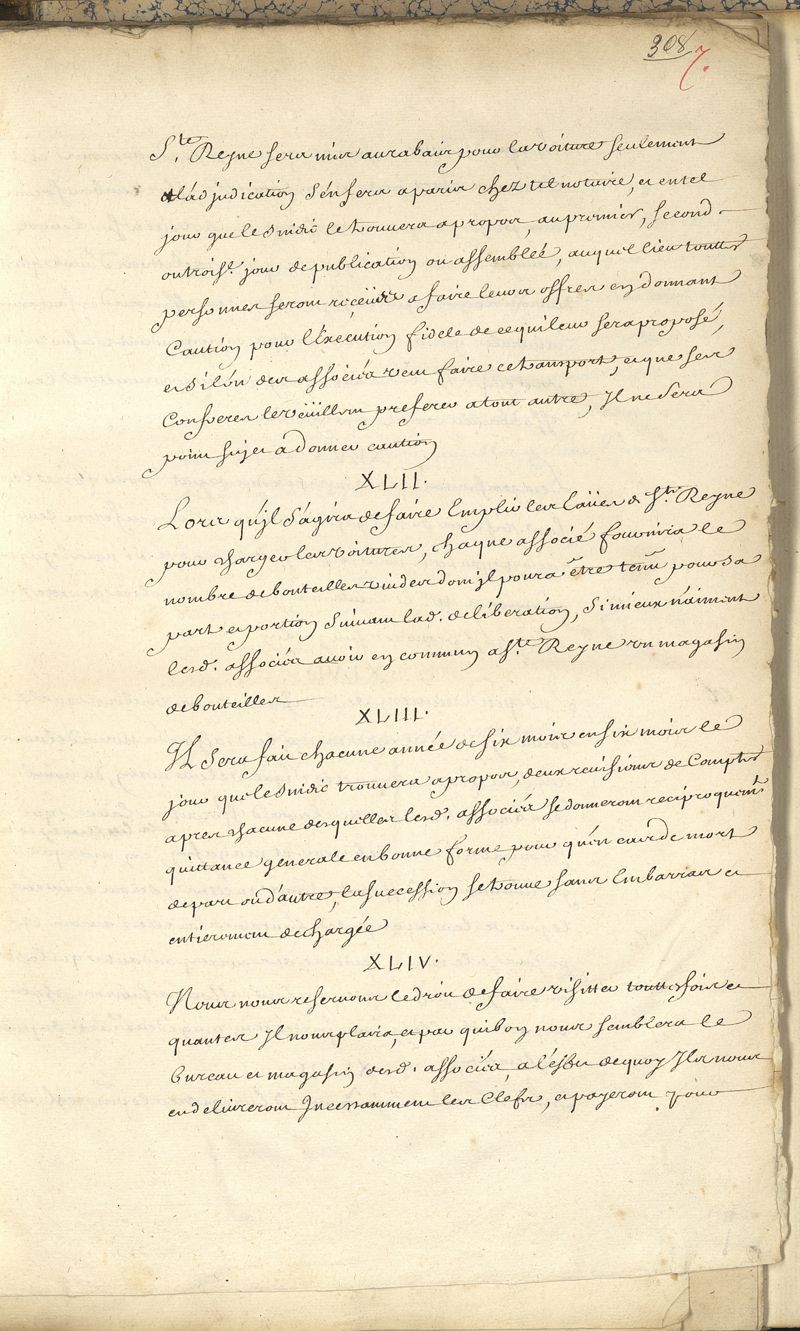 308 7.
S.te Reyne sera mis au rabais pour la voiture seulement
et l'adjudication s'en fera a paris chez tel notaire, et en tel
jour que le sindic le trouvera a propos, au premier, second
ou trois.e jour de publication ou assemblée, auquel lieu touttes
personnes seront receües a faire leurs offres en donnant
Caution pour l'Exécution fidele de ce qui leur sera proposé,
et si l'ún des associés veut faire ce transport, et que ses
Confreres le veüillent preferer a tout autre, Il ne sera
point sujet a donner caution
XLII.
Lors qu'jl s'agira de faire Emplir les Caües de S.te Reyne
pour charger les voitures, chaque associé fournira le
nombre de bouteilles vuides dont jl poura être tenu pour sa
part et portion suivant lad. deliberation, si mieux n'aiment
lesd. associés avoir en commun a S.te Reyne un magasin
de bouteilles
XLIII.
Il sera fait chacune année de six mois en six mois le
jour que le sindic trouvera a propos, deux reuisions de Comptes
apres chacune desquelles lesd. associés se donneront reciproquem.t
quittance generale en bonne forme pour qu'en cas de mort
de part ou d'autre, la succession se trouve sans Embarras et
entierement dechargée
XLIV.
Nous nous reservons le droit de faire visitter touttes fois et
quantes Il nous plaira, et par qui bon nous semblera le
Bureau et magasin desd. associés, a l'éffet de quoy Ils nous
en delivreront Incessamment les Clefs, et payeront pour